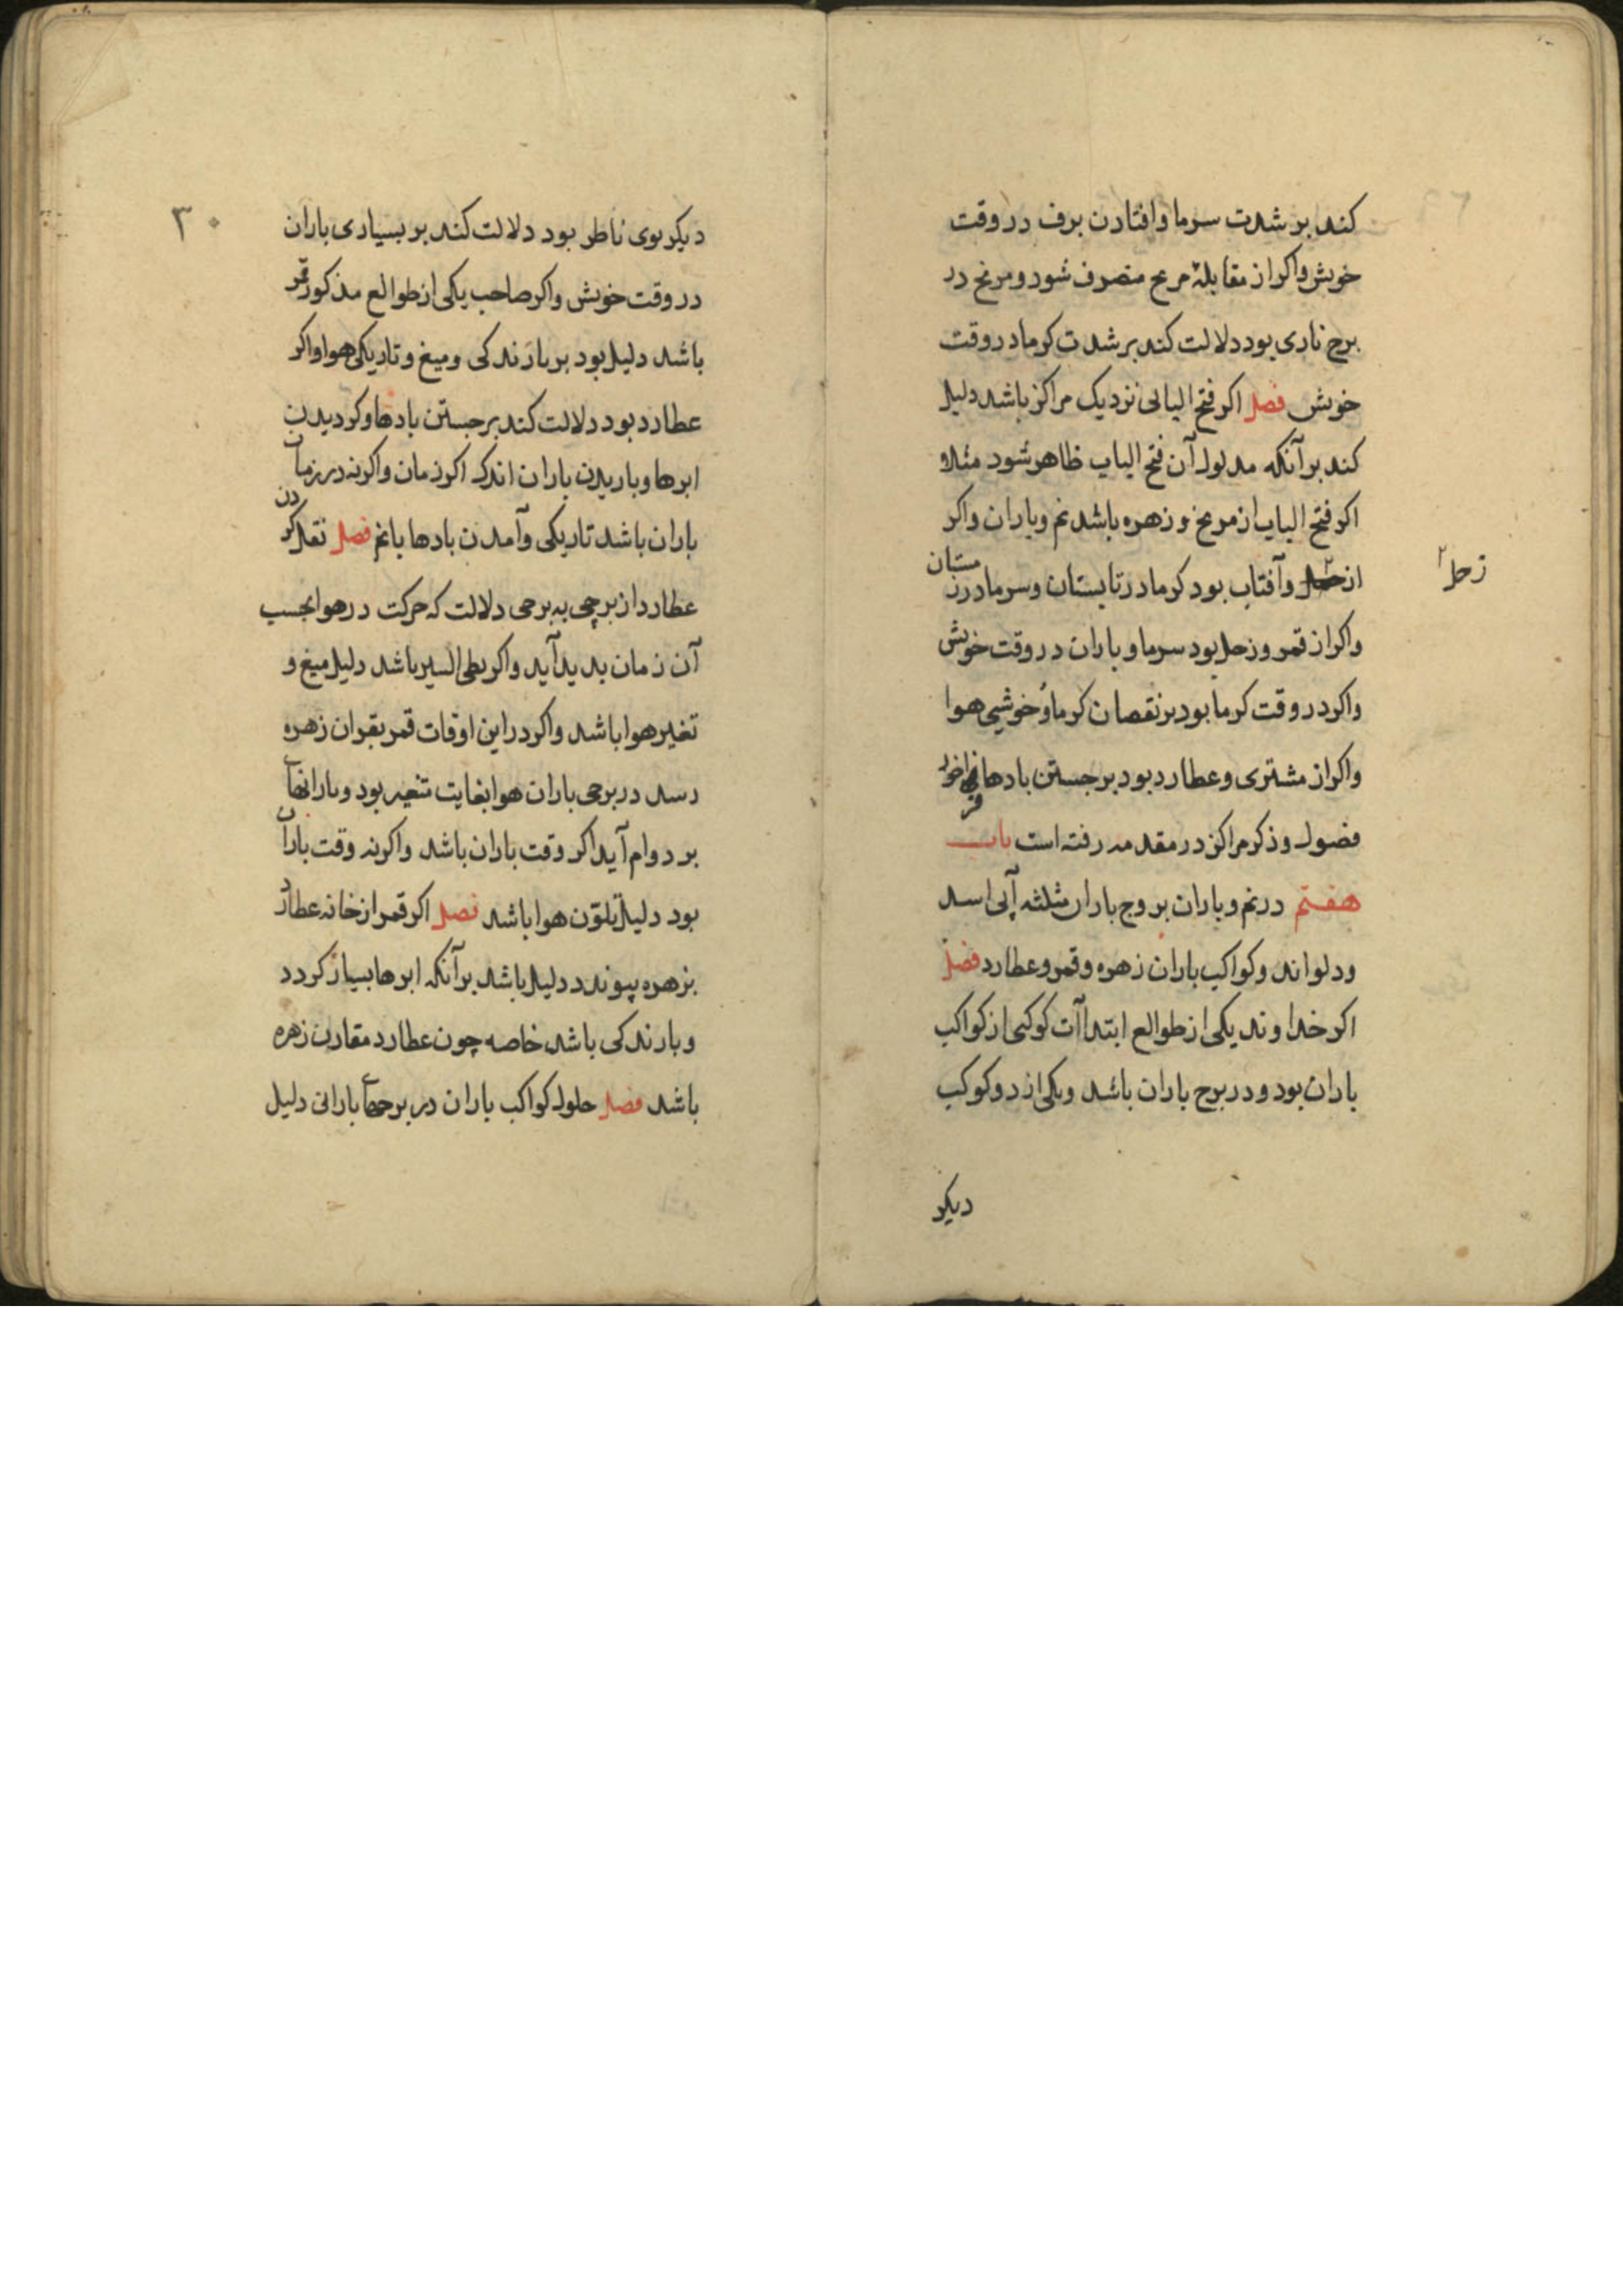 کند بر شدت سرما و افتادن برف در وقت
خویش و اکر از مقابلهٔ مریخ منصرف شود و مریخ در
برج ناری بود دلالت کند بر شدت کرما در وقت
خویش فصل اکر فتح الیالی نزدیک مراکز باشد دلیل
کند بر آنکه مدلول آن فتح الباب ظاهر شود مثلا
اکر فتح الباب از مریخ و زهره باشد نم و باران و اکر
از زحل و آفتاب بود کرما در تابستان و سرما در زمستان
زحل
و اکر از قمر و زحل بود سرما و باران در وقت خویش
و اکر در وقت کرما بود بر نقصان کرما و خوشی هوا
و اکر از مشتری و عطارد بود بر جستن بادها
فصول و ذکر مراکز در مقدمه رفته است باب
هفتم در نم و باران بروج باران مثلثه آبی اسد
و دلو اند و کواکب باران زهره و قمر و عطارد فصل
اکر خداوند یکی از طوالع ابتداآت کوکبی از کواکب
باران بود و در برج باران باشد و یکی از دو کوکب
دیکر
۳۰
دیکر بوی ناظر بود دلالت کند بر بسیاری باران
در وقت خویش و اکر صاحب یکی از طوالع مذکور قمر
باشد دلیل بود بر بارندکی و میغ و تاریکی هوا و اکر
عطارد بود دلالت کند بر جستن بادها و کردیدن
ابرها و باریدن باران اندک اکر زمان و اکرنه در زمان
باران باشد تاریکی و آمدن بادها با نم فصل نقل کردن
عطارد از برجی به برجی دلالت که حرکت در هوا بحسب
آن زمان پدید آید و اکر بطی السیر باشد دلیل میغ و
تغیر هوا باشد و اکر در این اوقات قمر بقران زهره
رسد در برجی باران هوا بغایت متغیر بود و بارانهای
بر دوام آید اکر وقت باران باشد و اکرنه وقت باران
بود دلیل تلوّن هوا باشد فصل اکر قمر از خانه عطارد
بزهره پیوندد دلیل باشد بر آنکه ابرها بسیار کردد
و بارندکی باشد خاصه چون عطارد مقارن زهره
باشد فصل حلول کواکب باران در برجهای بارانی دلیل